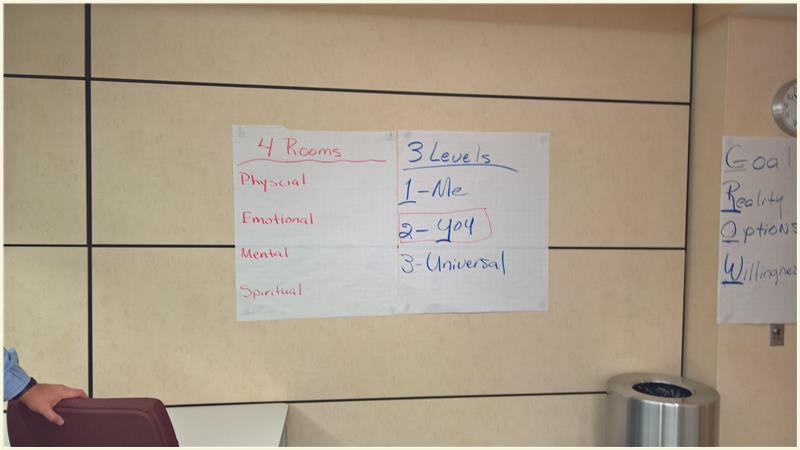 4 Rooms
Physcial
Emotional
Mental
Spiritual
3 Levels
1-Me
2- you
3-Universal
Goal
Reality
Options
Willingnes